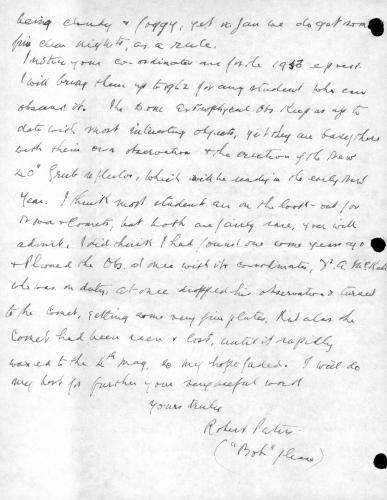 being cloudy & foggy, yet in Jan we do get some
fine clear nights, as a rule.
I notice your co-ordinates are for the 1950 epoch.
I will bring them up to 1962 for any student who can
observe it. The Dom. Astrophysical Obs keep us up to
date with most interesting objects, yet they are busy there
with their own observation & the erection of the New
40" Grubb reflector, which will be ready in the early New
Year. I think most student are on the look-out for
Nova & Comets, but both are fairly rare, you will
admit. I did think I had found one some years ago
& Phoned the Obs. at once with its co-ordinates, Dr. A. McK
who was on duty, at once dropped his observations & turned
to the comet, getting some very fine plates, But alas the
Comet had been seen & lost, until it rapidly
waxed to the 4th mag, so my hopes faded. I will do
my best to further your very useful work
Yours truly
Robert Peters
("Bob" please)